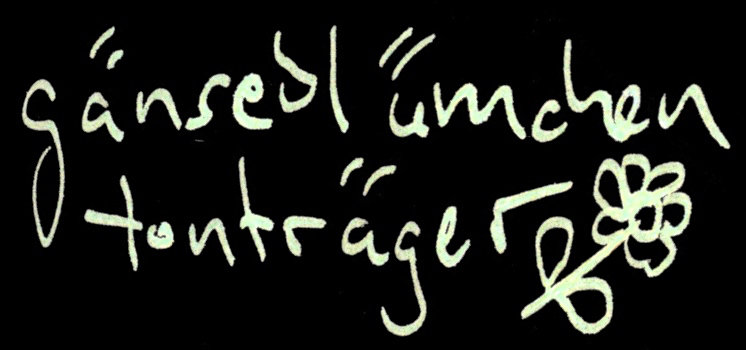 gänseblümchen
tonträger